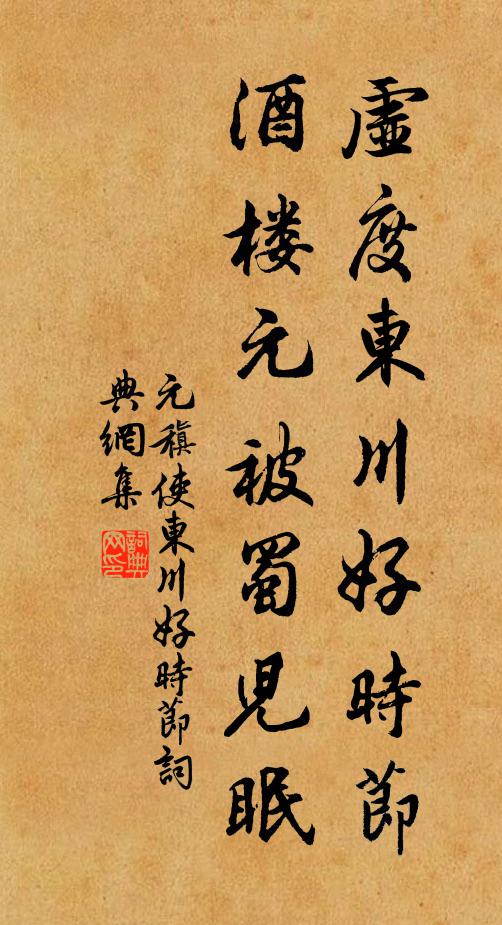 虛度東川好時節
酒楼元被蜀児眠
元稹使東川好時節詞
典網集
詞典
网印